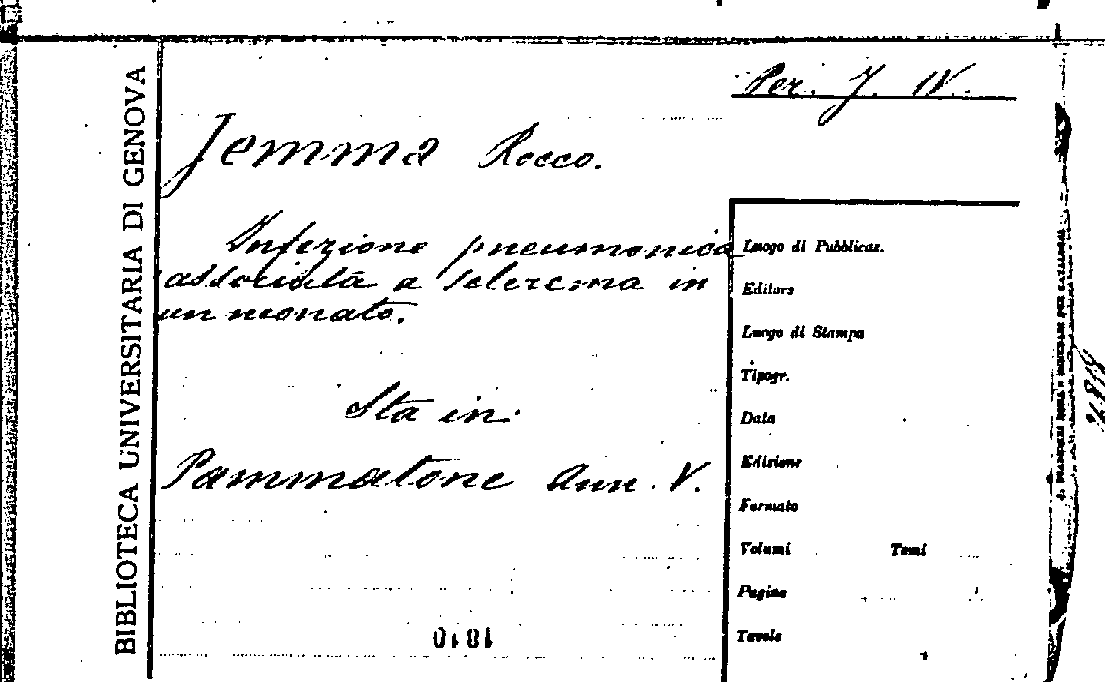 Per. J. IV.
BIBLIOTECA UNIVERSITARIA DI GENOVA
Jemma Rocco.
Infezione pneumonica
associata a sclerema in
un neonato.
Sta in:
Pammatone Ann. V.
Luogo di Pubblicaz.
Editore
Luogo di Stampa
Tipogr.
Data
Edizione
Formato
Volumi Tomi
Pagine
Tavole